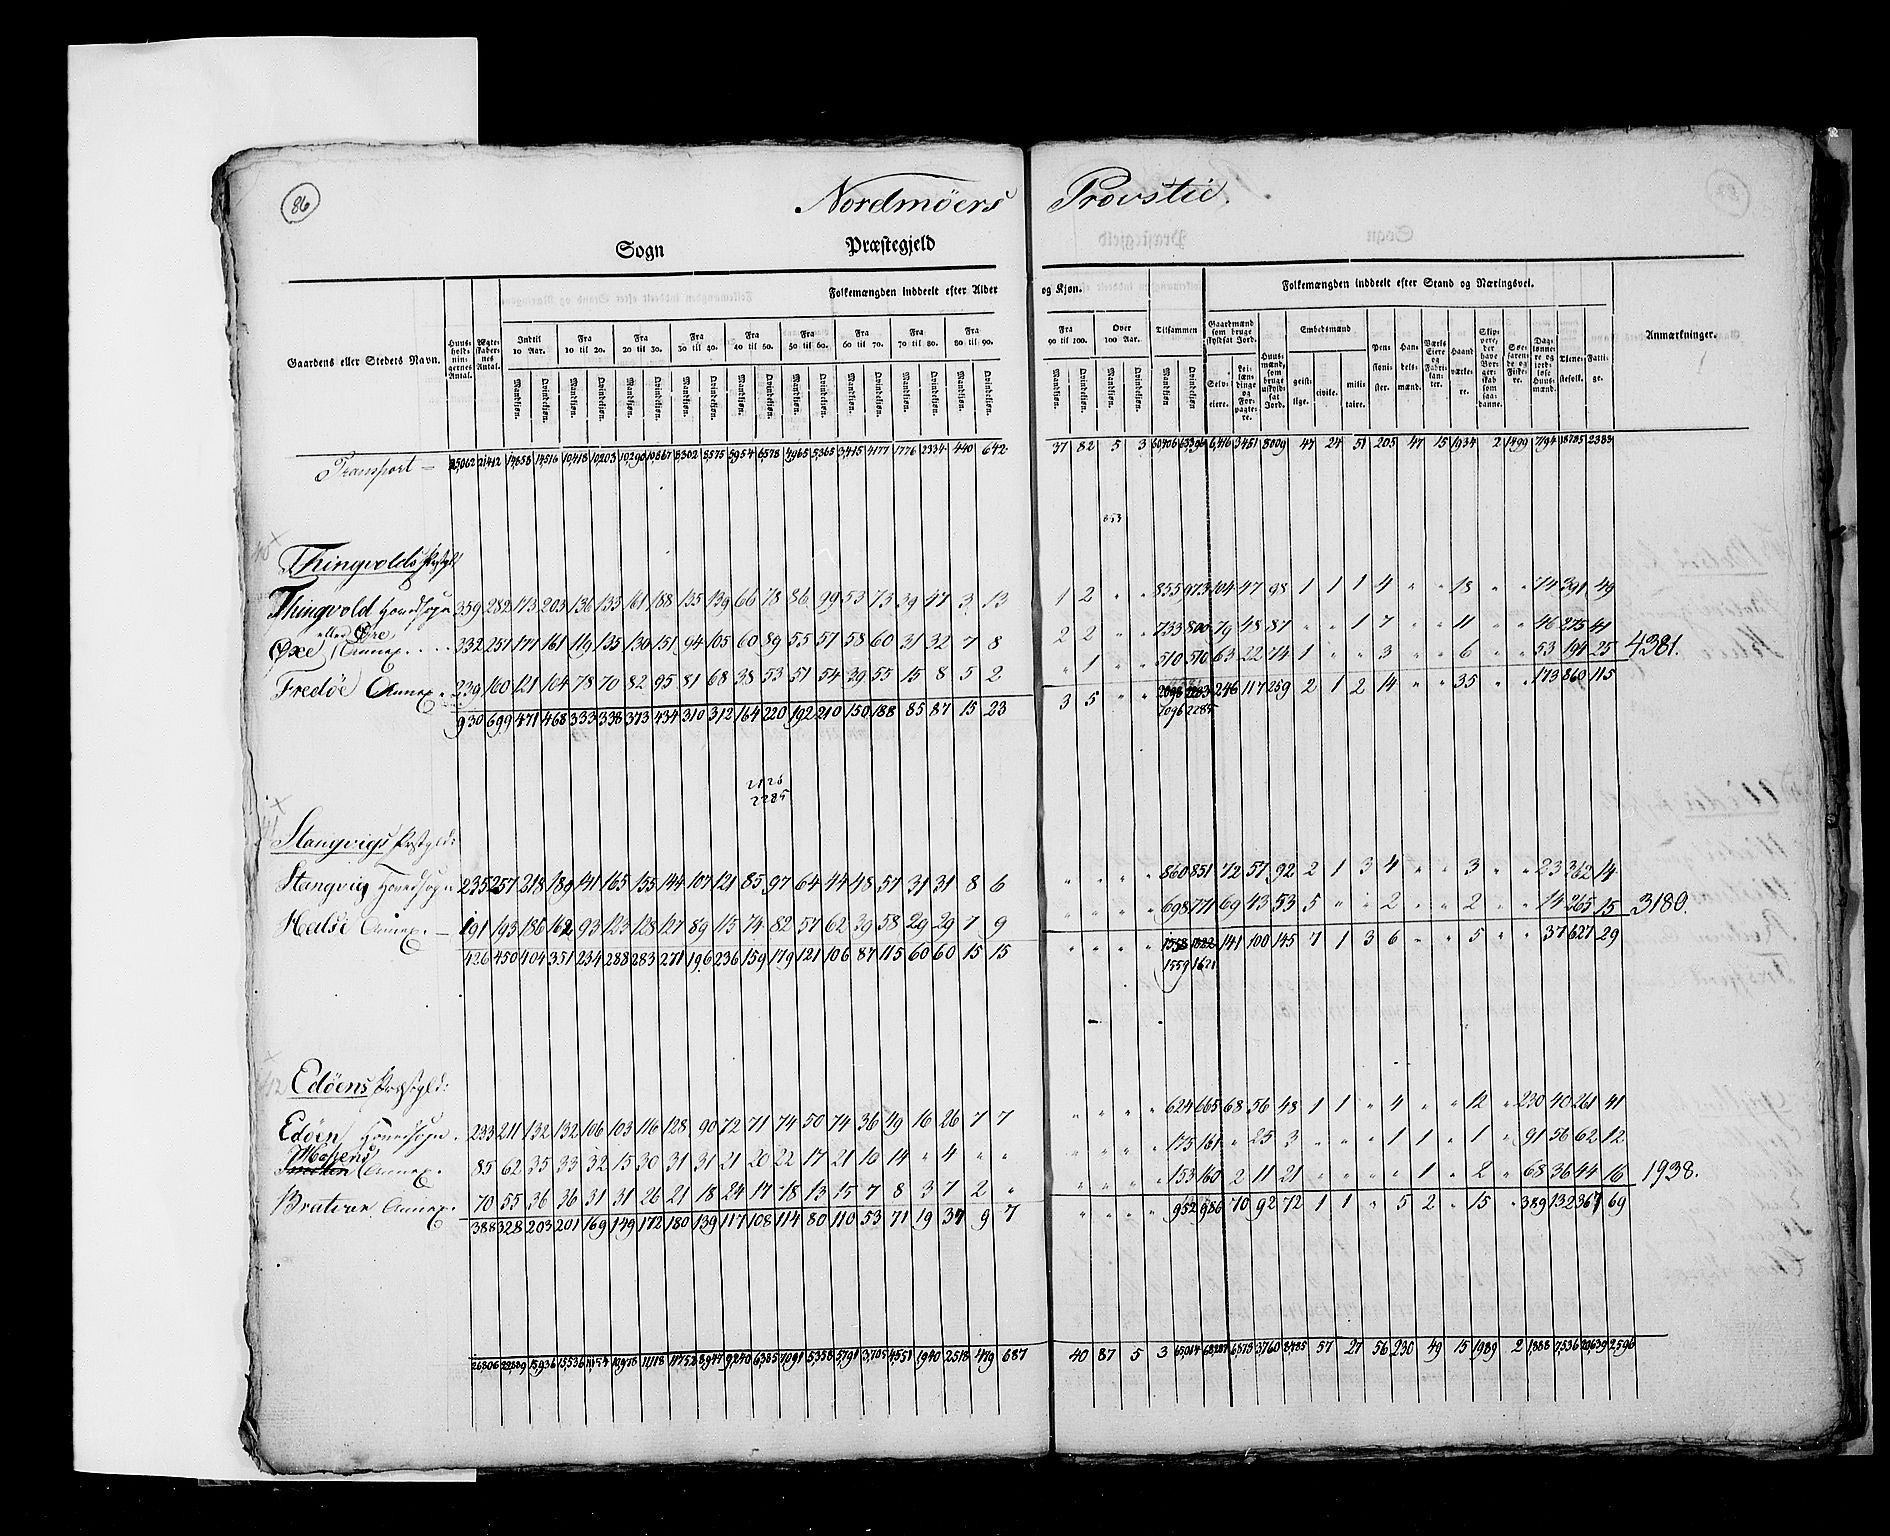 86
Nordmöers Provstie.
Sogn Præstegjeld
Folkemængden inddeelt efter Alder og Kjøn. Folkemængden inddeelt efter Stand og Næringsvei.
Gaardens eller Stedets Navn. Huus-holdningernes Antal. Ægteskabernes Antal. Indtil 10 Aar. Fra 10 til 20. Fra 20 til 30. Fra 30 til 40. Fra 40 til 50. Fra 50 til 60. Fra 60 til 70. Fra 70 til 80. Fra 80 til 90. Fra 90 til 100. Over 100 Aar. Tilsammen Embedsmænd Anmærkninger.
Mandkjøn. Qvindekjøn. Mandkjøn. Qvindekjøn. Mandkjøn. Qvindekjøn. Mandkjøn. Qvindekjøn. Mandkjøn. Qvindekjøn. Mandkjøn. Qvindekjøn. Mandkjøn. Qvindekjøn. Mandkjøn. Qvindekjøn. Mandkjøn. Qvindekjøn. Mandkjøn. Qvindekjøn. Mandkjøn. Qvindekjøn. Mandkjøn. Qvindekjøn. geistlige. civile. militaire.
Transport — 25,062 21,412 14,858 14,516 10,418 10,203 10,290 10,867 8302 8,575 5954 6,578 4,965 5,365 3,415 4177 1776 2334 440 642 37 82 5 3 60,406 63,306 6,416 3451 8009 47 24 51 205 47 15 1934 2 1499 7194 18785 2383
653
Thingvolds Præstgjld
Thingvold Hovedsogn 359 282 173 203 136 133 161 188 135 139 66 78 86 99 53 73 39 47 3 13 1 2 " " 855 973 104 47 98 1 1 1 4 " " 18 " " 74 391 49
eller Øre
Øxe Annex. 332 257 177 161 119 135 130 151 94 105 60 89 55 57 58 60 31 32 7 8 2 2 " " 733 800 79 48 87 " " 1 7 " " 11 " " 46 275 41
Fredöe Annex. 239 160 121 104 78 70 82 95 81 68 38 53 51 54 39 55 15 8 5 2 " 1 " " 510 510 63 22 74 1 " " 3 " " 6 " " 53 194 25 4381.
930 699 471 468 333 338 373 434 310 312 164 220 192 210 150 188 85 87 15 23 3 5 " " 2098 2283 246 117 259 2 1 2 14 " " 35 " " 173 860 115
2096 2285
2126
2285
Stangvigs Præstgjld:
Stangvig Hovedsogn 235 257 218 189 141 165 155 144 107 121 85 97 64 44 48 57 31 31 8 6 " " " " 860 851 72 57 92 2 1 3 4 " " 3 " " 23 362 14
Halse Annex. — 191 193 186 162 93 123 128 127 89 115 74 82 57 62 39 58 29 29 7 9 " " " " 698 771 69 43 53 5 " " 2 " " 2 " " 14 265 15 3180.
426 450 404 351 234 288 283 271 196 236 159 179 121 106 87 115 60 60 15 15 " " " " 1558 1622 141 100 145 7 1 3 6 " " 5 " " 37 627 29
1559 1621
Edöens Præstgjld:
Edöen Hovedsogn. 233 211 132 132 106 103 116 128 90 72 71 74 50 74 36 49 16 26 7 7 " " " " 624 665 68 56 48 1 1 " 4 " " 12 " 230 40 261 41
Annex. 85 62 35 33 32 15 30 31 31 21 20 22 17 21 10 14 " 4 " " " " " " 175 161 " 25 3 " " " 1 1 " 1 " 91 56 62 12
Annex. 70 55 36 36 31 31 26 21 18 24 17 18 13 15 7 8 3 7 2 " " " " " 153 160 2 11 21 " " " " 1 " 2 " 68 36 44 16 1938.
388 328 203 201 169 149 172 180 139 117 108 114 80 110 53 71 19 34 9 7 " " " " 952 986 70 92 72 1 1 " 5 2 " 15 " 389 132 367 69
26806 22889 15936 15536 11154 10978 11118 11752 8947 9240 6385 7091 5358 5791 3,705 4551 1940 2518 479 687 40 87 5 3 65,014 68,287 6873 3760 8485 57 27 56 230 49 15 1989 2 1888 7,536 20,639 2596